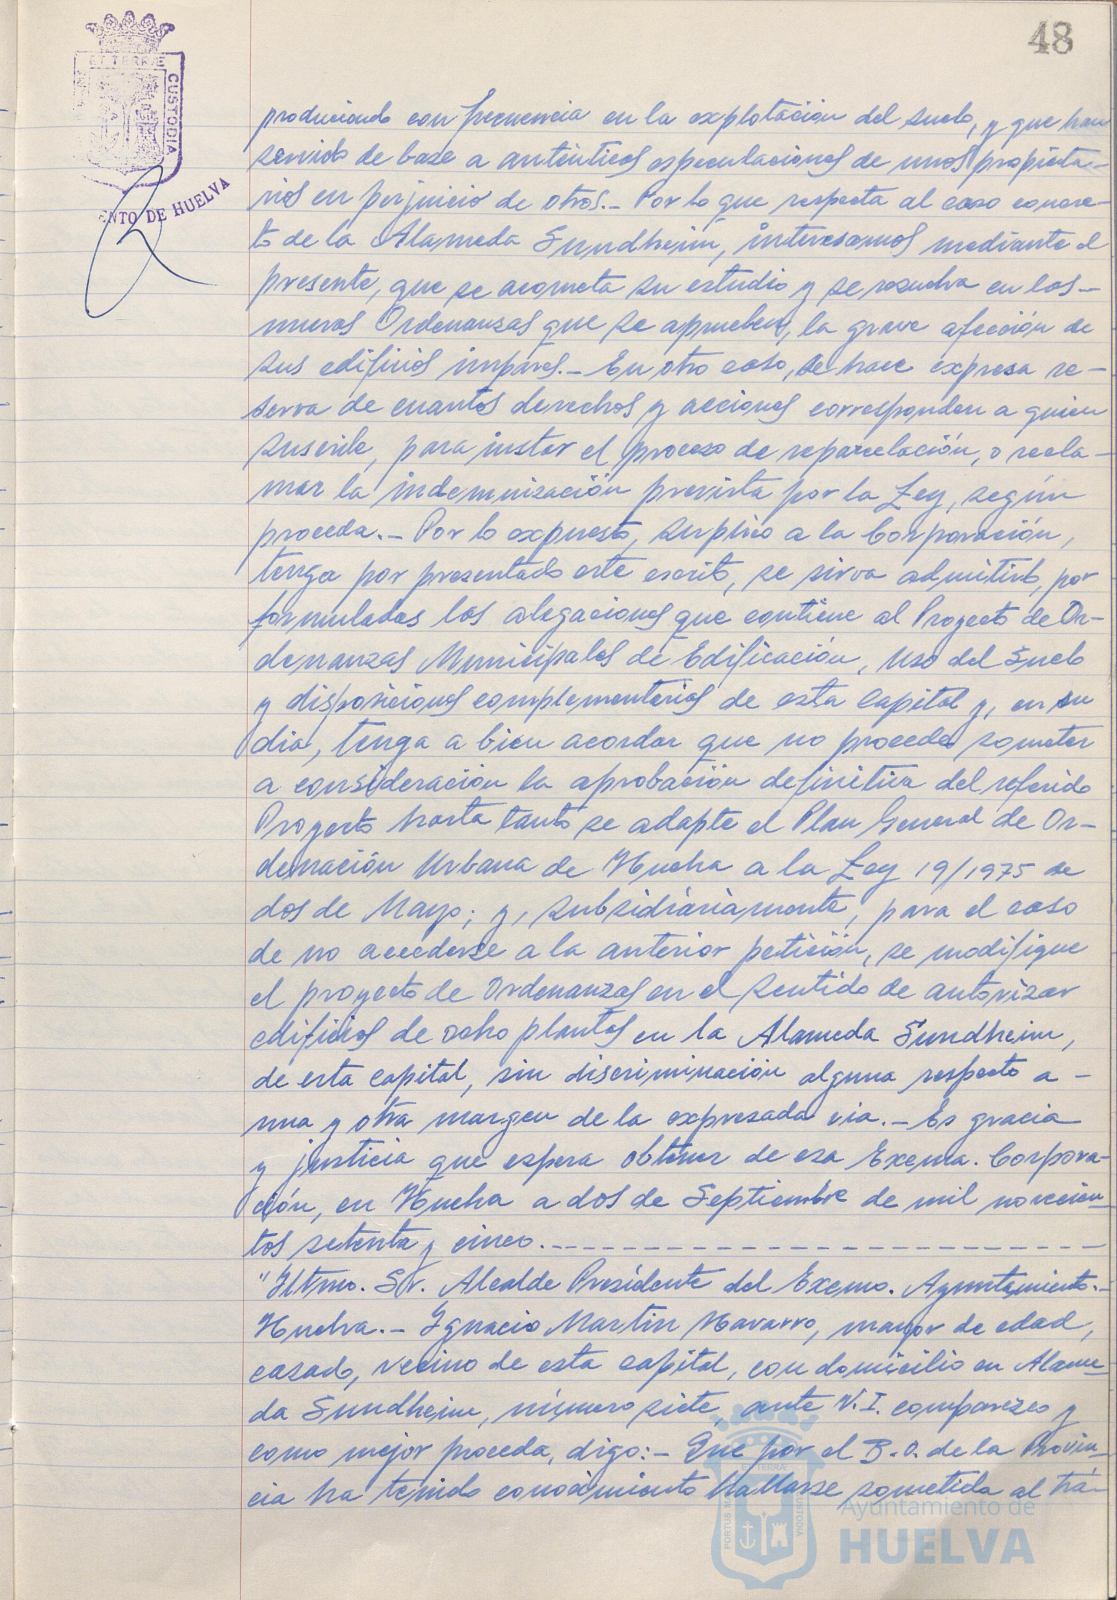 48
ET TERRÆ
CUSTODIA
ENTO DE HUELVA
produciendo con frecuencia en la explotación del suelo, y que han
servido de base a auténticas especulaciones de unos propieta-
rios en perjuicio de otros.- Por lo que respecta al caso concre-
to de la Alameda Sundheim, interesamos mediante el
presente, que se acometa su estudio y se resuelva en las-
nuevas Ordenanzas que se aprueben, la grave afección de
sus edificios impares.- En otro caso, se hace expresa re-
serva de cuantos derechos y acciones corresponden a quien
suscribe, para instar el proceso de reparcelación, o recla-
mar la indemnización prevista por la Ley, según
proceda.- Por lo expuesto, suplico a la Corporación,
tenga por presentado este escrito, se sirva admitirlo, por
formuladas las alegaciones que contiene al Proyecto de Or-
denanzas Municipales de Edificación, Uso del Suelo
y disposiciones complementarias de esta capital y, en su
día, tenga a bien acordar que no procede someter
a consideración la aprobación definitiva del referido
Proyecto hasta tanto se adapte el Plan General de Or-
denación Urbana de Huelva a la Ley 19/1975 de
dos de Mayo; y, subsidiariamente, para el caso
de no accederse a la anterior petición, se modifique
el proyecto de Ordenanzas en el sentido de autorizar
edificios de ocho plantas en la Alameda Sundheim,
de esta capital, sin discriminación alguna respecto a-
una y otra margen de la expresada via.- Es gracia
y justicia que espera obtener de esa Excma. Corpora-
ción, en Huelva a dos de Septiembre de mil novecien-
tos setenta y cinco.-------------------
"Iltmo. Sr. Alcalde Presidente del Excmo. Ayuntamiento.-
Huelva.- Ignacio Martin Navarro, mayor de edad,
casado, vecino de esta capital, con domicilio en Alame-
da Sundheim, número siete, ante V.I. comparezco y
como mejor proceda, digo:- Que por el B.O. de la Provin-
cia ha tenido conocimiento hallarse sometida al trá-
Ayuntamiento de
HUELVA